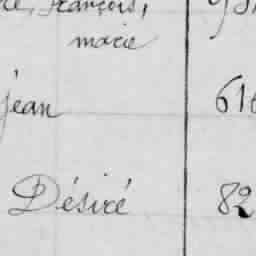 François,
marie
jean 616
Désiré 82